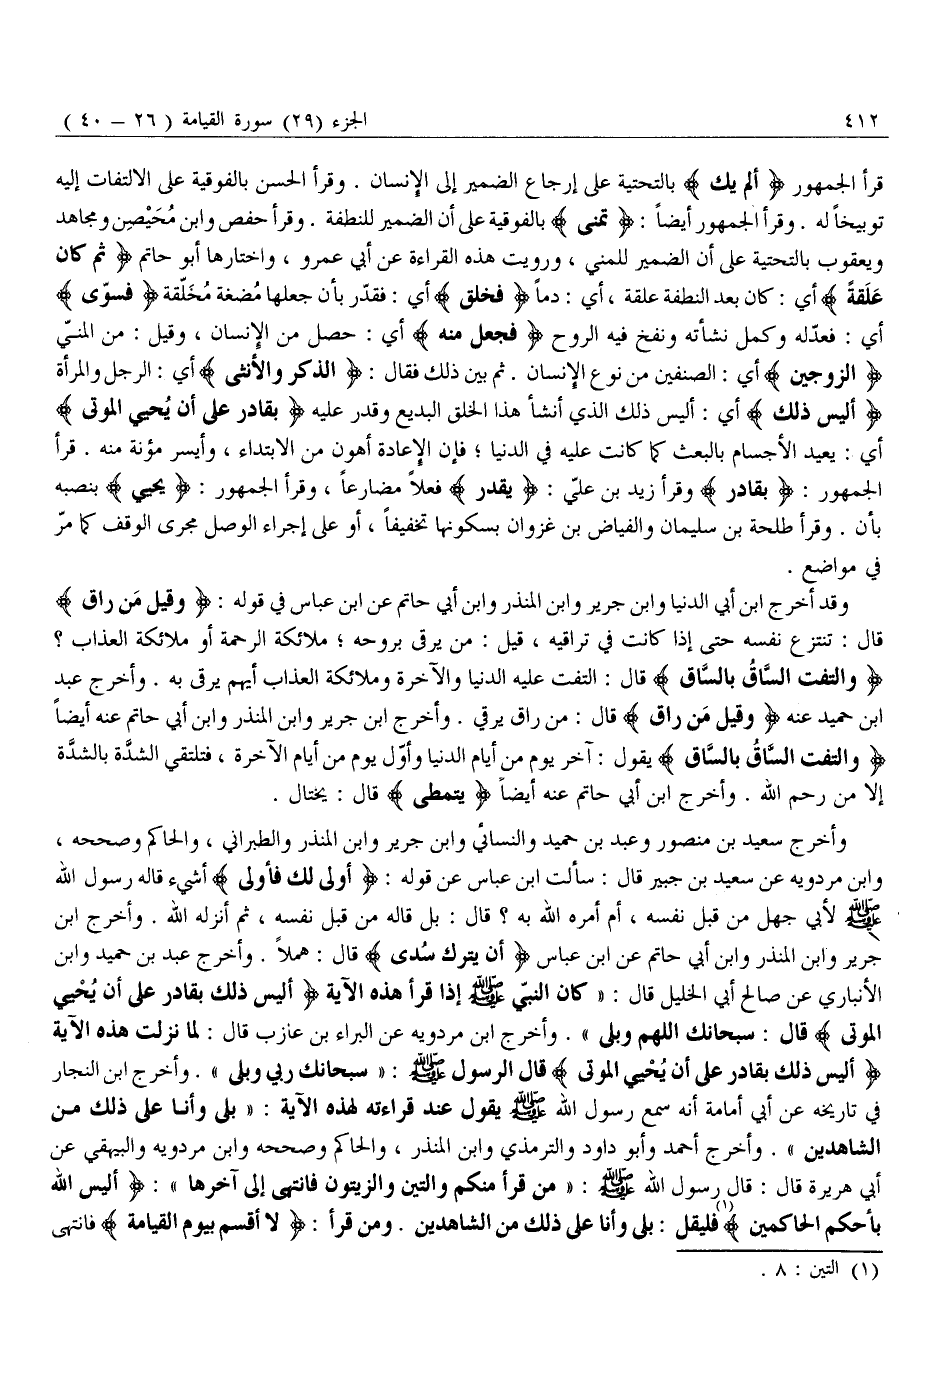 ٤١٢ الجزء (٢٩) سورة القيامة ( ٢٦ – ٤٠ )
قرأ الجمهور ﴿ ألم يك ﴾ بالتحتية على إرجاع الضمير إلى الإنسان . وقرأ الحسن بالفوقية على الالتفات إليه
توبيخاً له . وقرأ الجمهور أيضاً : ﴿ تمنى ﴾ بالفوقية على أن الضمير للنطفة . وقرأ حفص وابن مُحَيْصِن ومجاهد
ويعقوب بالتحتية على أن الضمير للمني ، ورويت هذه القراءة عن أبي عمرو ، واختارها أبو حاتم ﴿ ثم كان
عَلَقةً ﴾ أي : كان بعد النطفة علقة ، أي : دماً ﴿ فخلق ﴾ أي : فقدّر بأن جعلها مُضغة مُخَلّقة ﴿ فسوّى ﴾
أي : فعدّله وكمل نشأته ونفخ فيه الروح ﴿ فجعل منه ﴾ أي : حصل من الإنسان ، وقيل : من المنيّ
﴿ الزوجين ﴾ أي : الصنفين من نوع الإنسان . ثم بين ذلك فقال : ﴿ الذكر والأنثى ﴾ أي : الرجل والمرأة
﴿ أليس ذلك ﴾ أي : أليس ذلك الذي أنشأ هذا الخلق البديع وقدر عليه ﴿ بقادر على أن يُحيي الموتى ﴾
أي : يعيد الأجسام بالبعث كما كانت عليه في الدنيا ؛ فإن الإعادة أهون من الابتداء ، وأيسر مؤنة منه . قرأ
الجمهور : ﴿ بقادر ﴾ وقرأ زيد بن عليّ : ﴿ يقدر ﴾ فعلاً مضارعاً ، وقرأ الجمهور : ﴿ يحيي ﴾ بنصبه
بأن . وقرأ طلحة بن سليمان والفياض بن غزوان بسكونها تخفيفاً ، أو على إجراء الوصل مجرى الوقف كما مرّ
في مواضع .
وقد أخرج ابن أبي الدنيا وابن جرير وابن المنذر وابن أبي حاتم عن ابن عباس في قوله : ﴿ وقيل مَن راق ﴾
قال : تنتزع نفسه حتى إذا كانت في تراقيه ، قيل : من يرقى بروحه ؛ ملائكة الرحمة أو ملائكة العذاب ؟
﴿ والتفت السَّاقُ بالسَّاق ﴾ قال : التفت عليه الدنيا والآخرة وملائكة العذاب أيهم يرقى به . وأخرج عبد
ابن حميد عنه ﴿ وقيل مَن راق ﴾ قال : من راق يرقي . وأخرج ابن جرير وابن المنذر وابن أبي حاتم عنه أيضاً
﴿ والتفت السَّاقُ بالسَّاق ﴾ يقول : آخر يوم من أيام الدنيا وأوّل يوم من أيام الآخرة ، فتلتقي الشدَّة بالشدَّة
إلا من رحم الله . وأخرج ابن أبي حاتم عنه أيضاً ﴿ يتمطى ﴾ قال : يختال .
وأخرج سعيد بن منصور وعبد بن حميد والنسائي وابن جرير وابن المنذر والطبراني ، والحاكم وصححه ،
وابن مردويه عن سعيد بن جبير قال : سألت ابن عباس عن قوله : ﴿ أولى لك فأولى ﴾ أشيء قاله رسول الله
ﷺ لأبي جهل من قبل نفسه ، أم أمره الله به ؟ قال : بل قاله من قبل نفسه ، ثم أنزله الله . وأخرج ابن
جرير وابن المنذر وابن أبي حاتم عن ابن عباس ﴿ أن يترك سُدى ﴾ قال : هملاً . وأخرج عبد بن حميد وابن
الأنباري عن صالح أبي الخليل قال : « كان النبيّ ﷺ إذا قرأ هذه الآية ﴿ أليس ذلك بقادر على أن يُحْيي
الموتى ﴾ قال : سبحانك اللهم وبلى » . وأخرج ابن مردويه عن البراء بن عازب قال : لما نزلت هذه الآية
﴿ أليس ذلك بقادر على أن يُحْيي الموتى ﴾ قال الرسول ﷺ : « سبحانك ربي وبلى » . وأخرج ابن النجار
في تاريخه عن أبي أمامة أنه سمع رسول الله ﷺ يقول عند قراءته لهذه الآية : « بلى وأنا على ذلك من
الشاهدين » . وأخرج أحمد وأبو داود والترمذي وابن المنذر ، والحاكم وصححه وابن مردويه والبيهقي عن
أبي هريرة قال : قال رسول الله ﷺ : « من قرأ منكم والتين والزيتون فانتهى إلى آخرها » : ﴿ أليس الله
بأحكم الحاكمين ﴾(١) فليقل : بلى وأنا على ذلك من الشاهدين . ومن قرأ : ﴿ لا أقسم بيوم القيامة ﴾ فانتهى
(١) التين : ٨ .